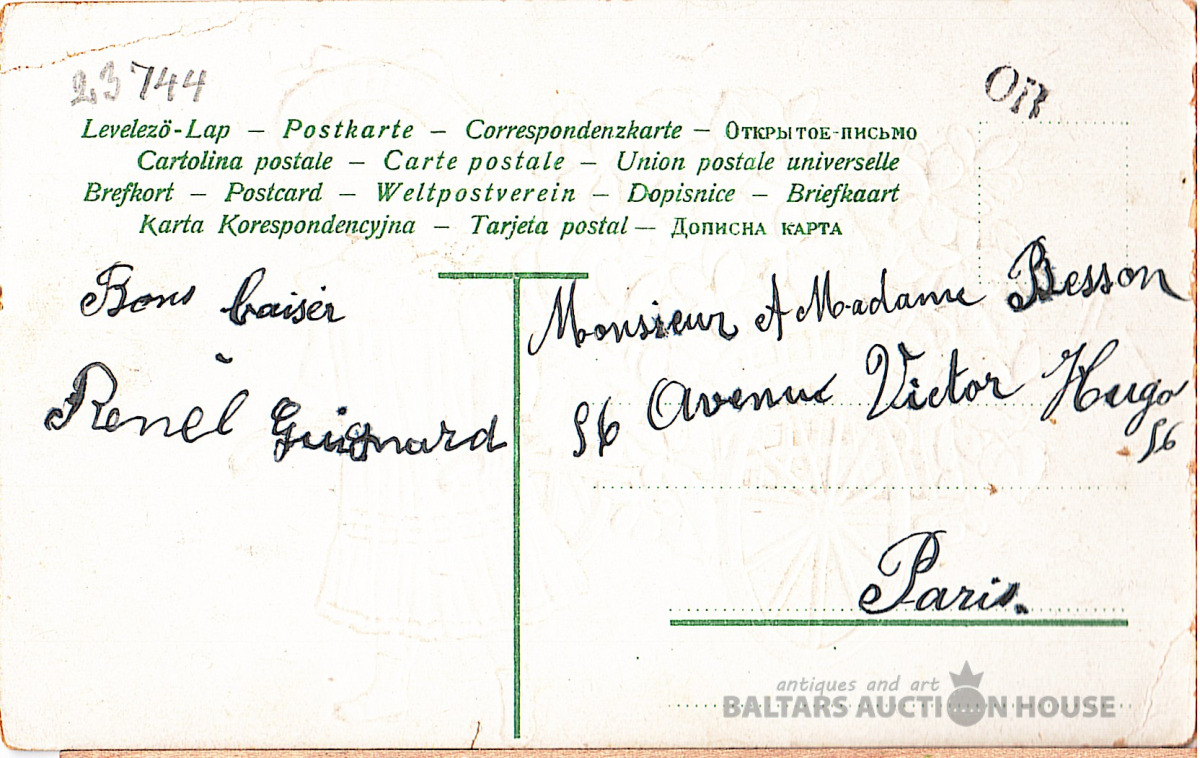 23744
OR
Levelező-Lap — Postkarte — Correspondenzkarte — Открытое-письмо
Cartolina postale — Carte postale — Union postale universelle
Brefkort — Postcard — Weltpostverein — Dopisnice — Briefkaart
Karta Korespondencyjna — Tarjeta postal — Дописна карта
Bons baiser
Renél Guignard
Monsieur & Madame Besson
56 Avenue Victor Hugo
56
Paris.
antiques and art
BALTARS AUCTION HOUSE